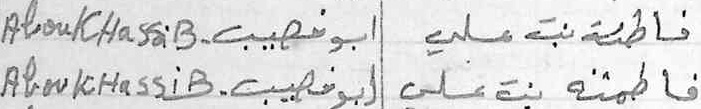 فاطمة بنت علي ابو خصيب AbouKHassiB.
فاطمته بنت علي ابو خصيب AbouKHassiB.